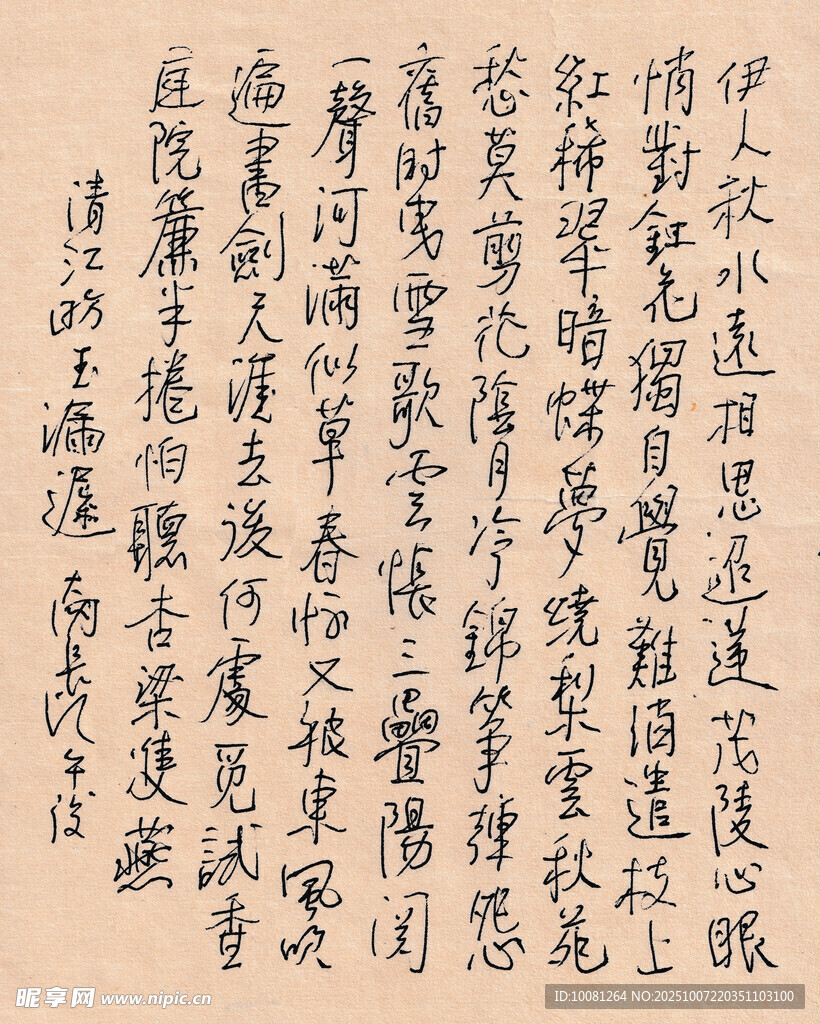 伊人秋水遠相思迢遞茂陵心眼
悄對釭花獨自覺難消遣枝上
紅稀翠暗蝶夢繞梨雲秋苑
愁莫剪花陰月冷錦筝彈怨
舊时曳雪歌雲悵三疊陽関
一聲河滿似草春恨又被東風吹
遍書劍天涯去後何處覓試香
庭院簾半捲怕聽杏梁雙燕
清江昉玉漏遲 午後
昵享网 www.nipic.cn
ID:10081264 NO:20251007220351103100